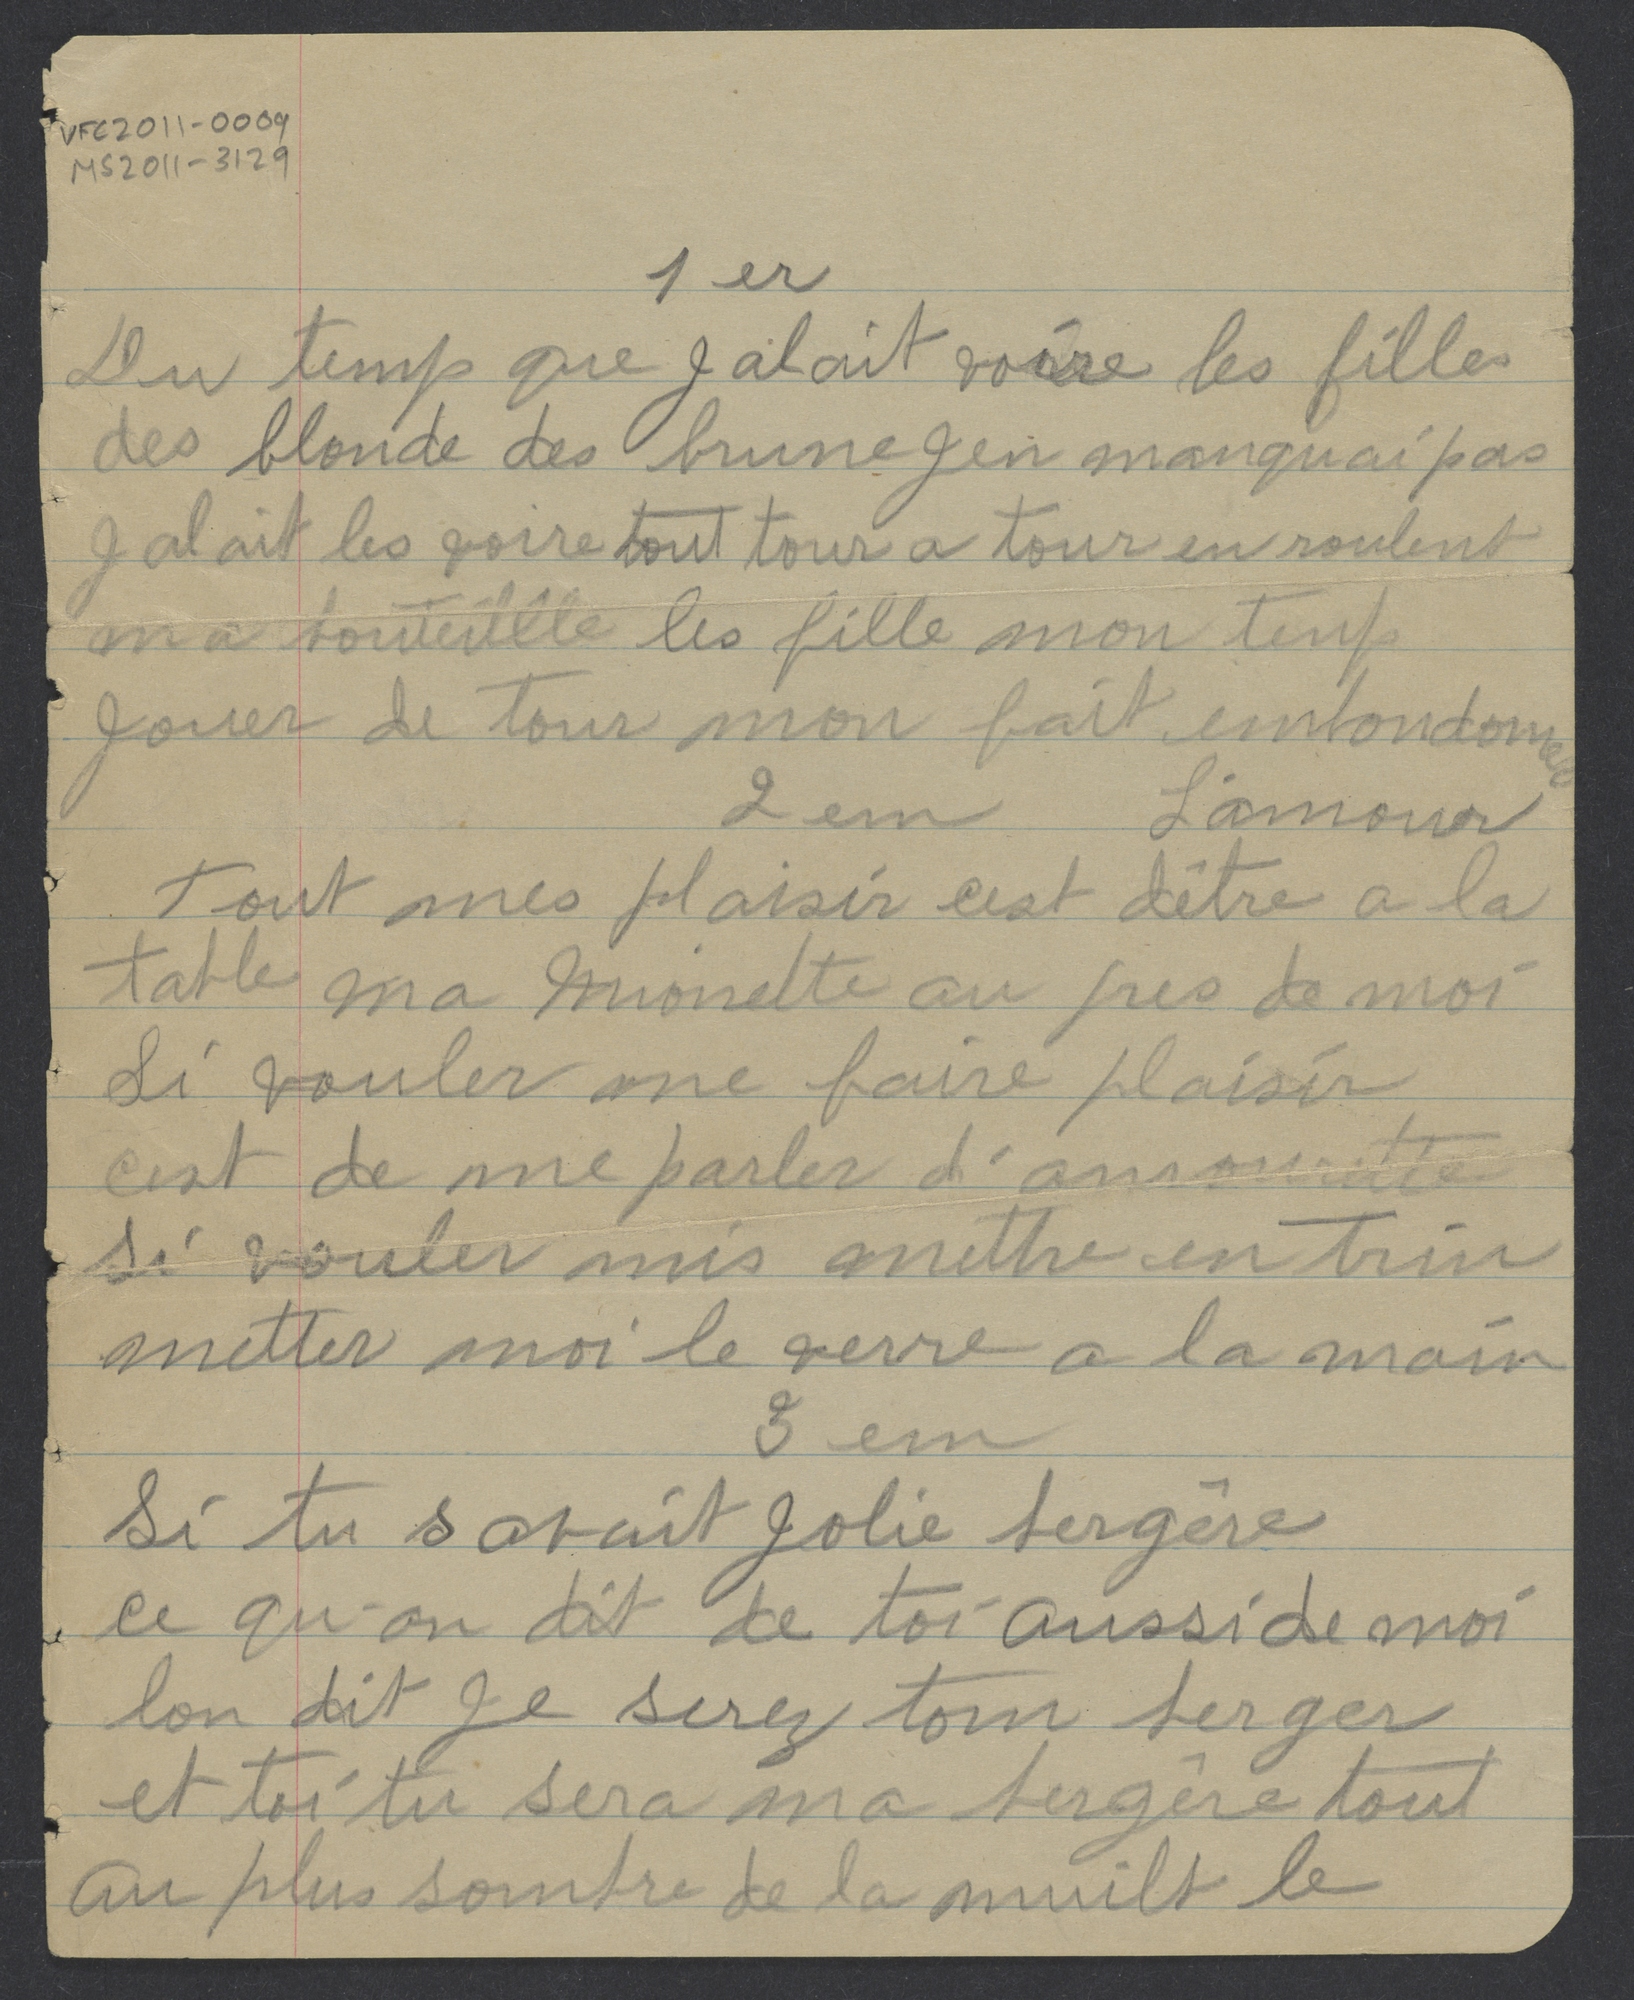 VFC2011-0009
MS2011-3129
1 er
Du temp que Jalait voire les filles
des blonde des brune Jen manquai pas
Jalait les voire tout tour a tour en roulent
ma bouteille les fille mon temp
Jouer de tour mon fait embondomer
2 em L'amour
Tout mes plaisir cest dêtre a la
table ma Mionette au pres de moi
Si vouler me faire plaisir
cest de me parler d'amourette
Si vouler mis mettre en trin
metter moi le verre a la main
3 em
Si tu savait Jolie bergêre
ce qu-on dit de toi aussi de moi
lon dit Je serez tom berger
et toi tu sera ma bergêre tout
au plus sombre de la nuilt le